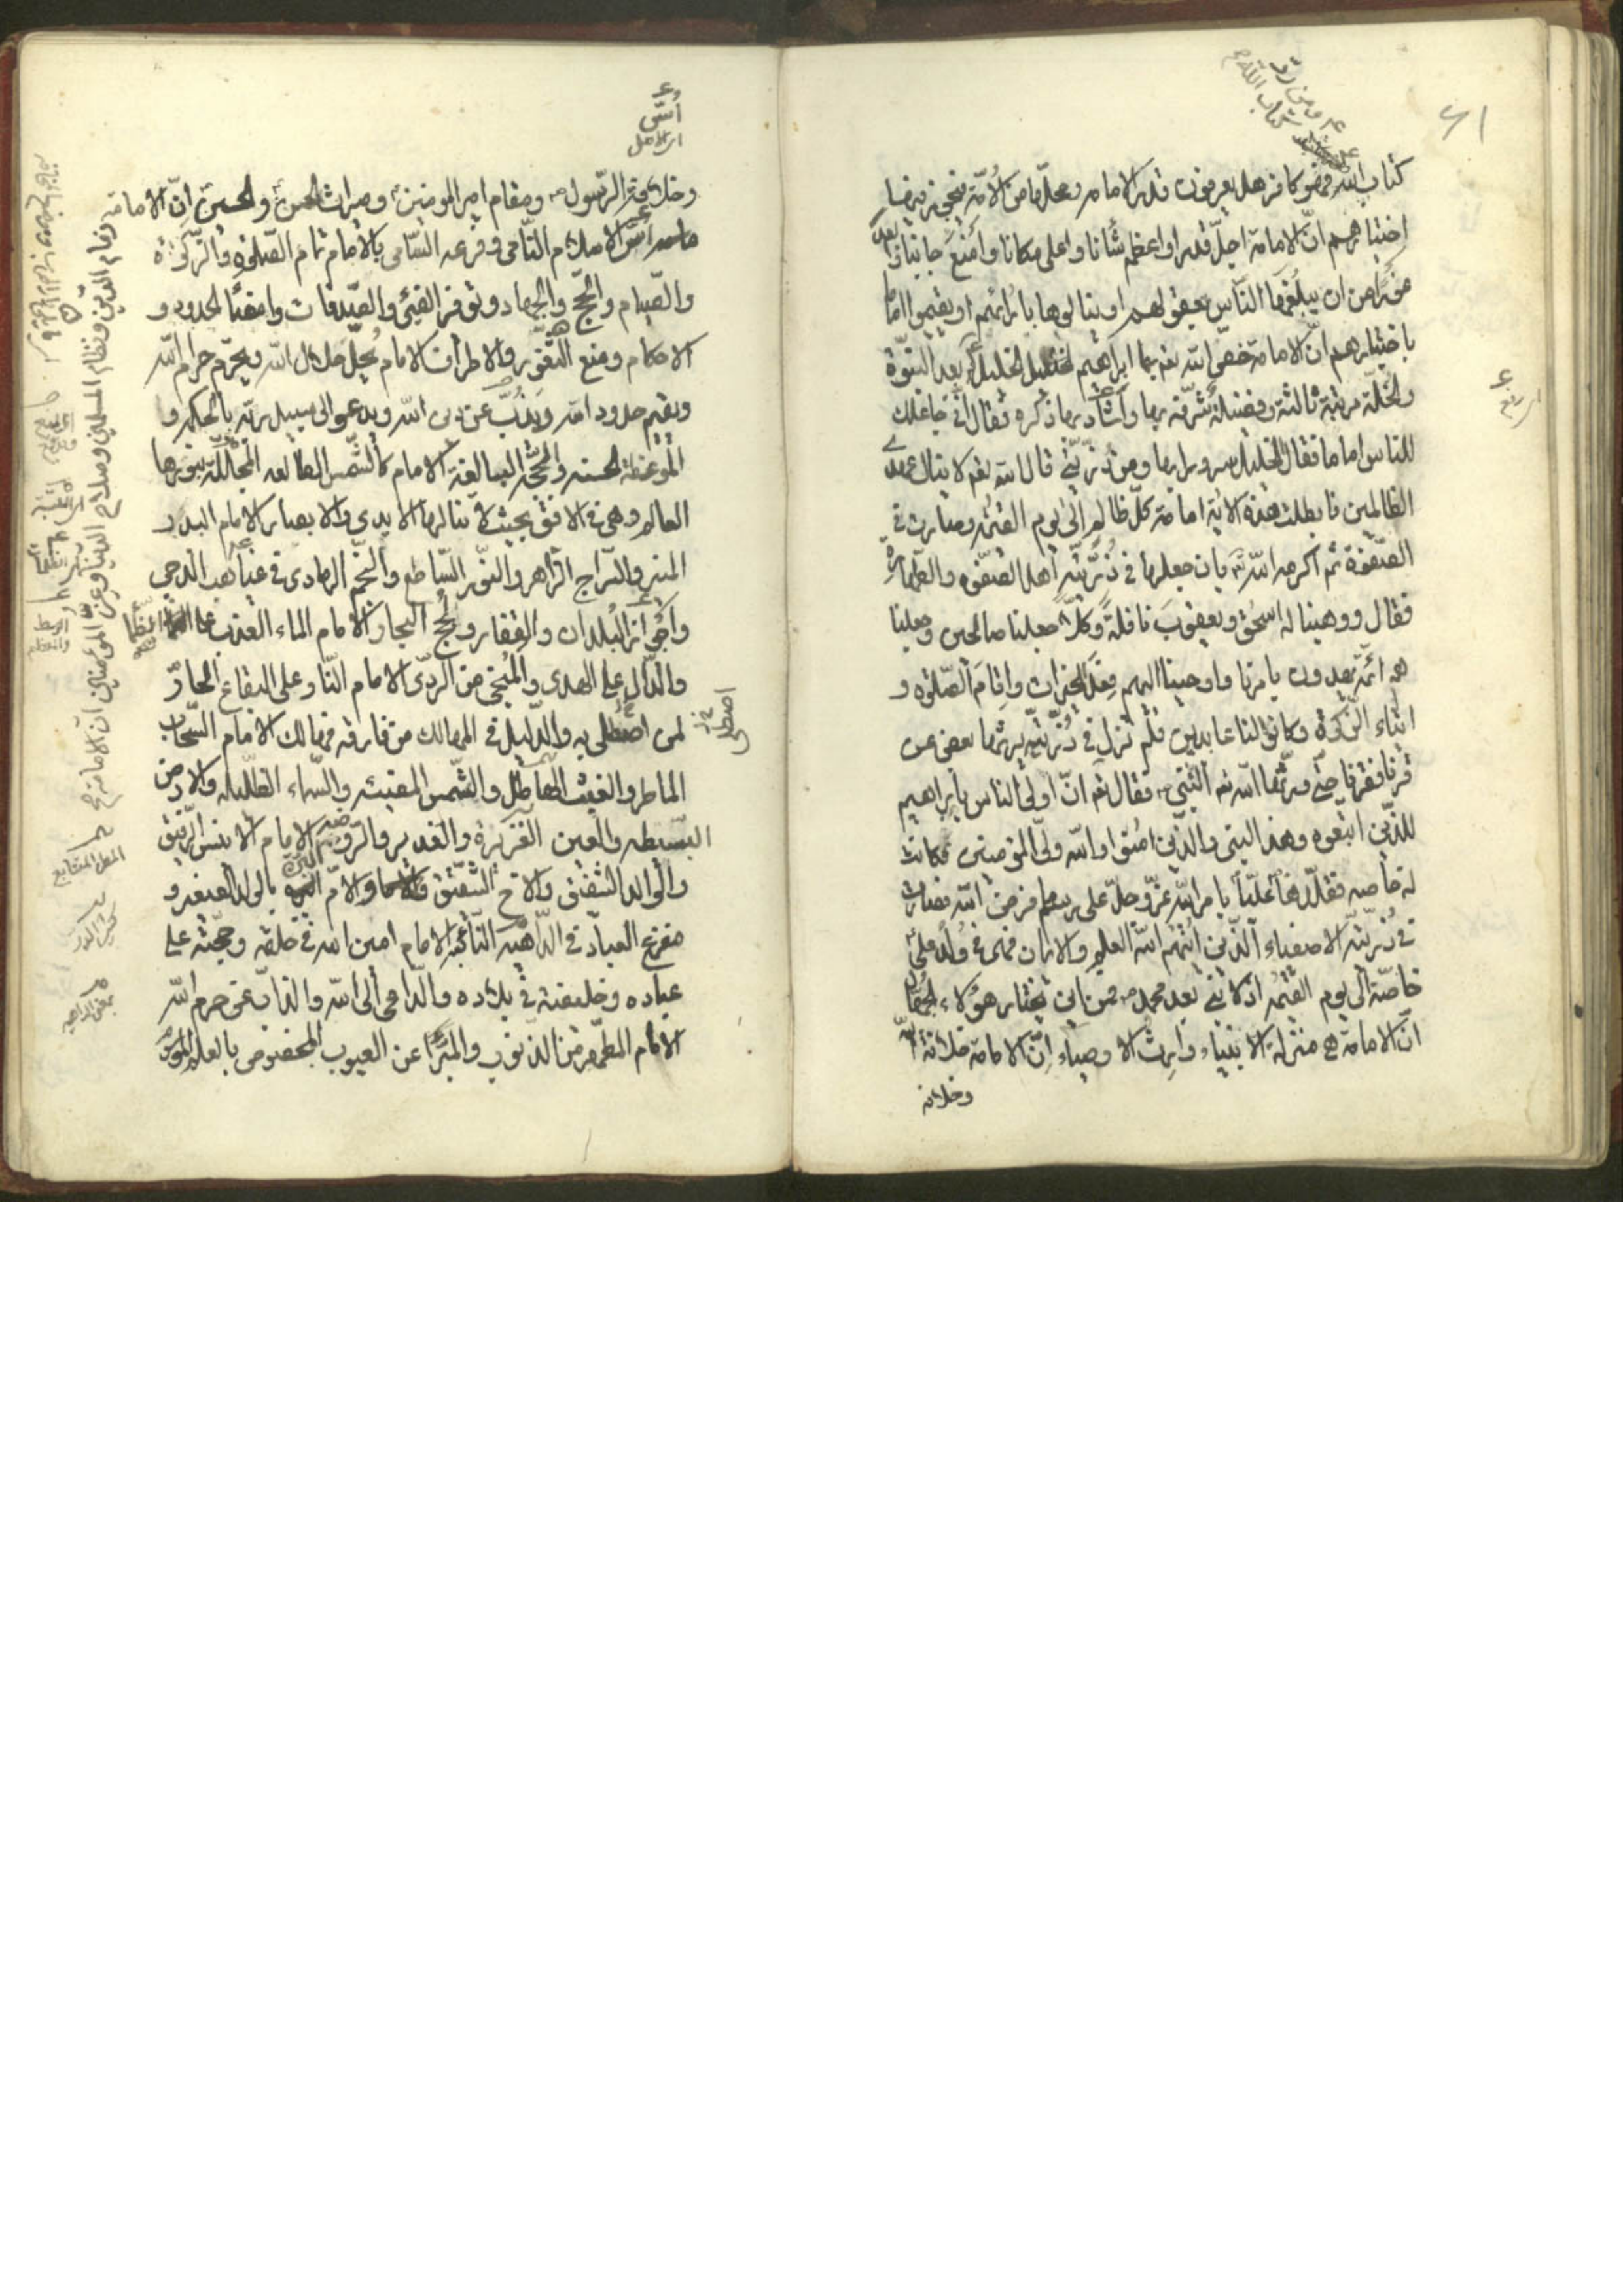 كتاب الله فهو كافر هل يعرفون قدر الامامه ومحلّها من الأمّة فيجوز فيها
اختيارهم انّ الامامة اجلّ قدرا واعظم شأنا واعلى مكانا وامنع جانبا وابعد
غورا من ان يبلغها الناس بعقولهم او ينالوها بارائهم او يقيموا اماما
باختيارهم انّ الامامة خصّ الله بها ابراهيم الخليل بعد النبوّة
والخلّة مرتبة ثالثة وفضيلة شرّفه بها واشاد بها ذكره فقال انّي جاعلك
للناس اماما فقال الخليل سرورا بها ومن ذرّيّتي قال الله لا ينال عهدي
الظالمين فابطلت هذه الاية امامة كلّ ظالم الى يوم القيمة وصارت في
الصّفوة ثم اكرمه الله بان جعلها في ذرّيّته اهل الصّفوة والطهارة
فقال ووهبنا له اسحق ويعقوب نافلة وكلّا جعلنا صالحين وجعلنا
هم ائمّة يهدون بامرنا واوحينا اليهم فعل الخيرات واقام الصّلوة و
ايتاء الزّكوة وكانوا لنا عابدين فلم تزل في ذرّيّته يرثها بعض عن
قرنا فقرنا حتّى ورّثها الله النبيّ فقال انّ اولى الناس بابراهيم
للذين اتبعوه وهذا النبي والذين امنوا والله وليّ المؤمنين فكانت
له خاصه فقلّدها عليّا بامر الله عزّ وجلّ على رسم ما فرض الله فصارت
في ذرّيّته الاصفياء الذين اتيهم الله العلم والايمان فهى في ولد علي
خاصّة الى يوم القيمة اذ لا نبي بعد محمد فمن اين يختار هؤلاء الجهّال
انّ الامامة هي منزلة الانبياء وارث الاوصياء انّ الامامة خلافة الله
وخلافه
وخلافة الرّسول ومقام امير المؤمنين وميراث الحسن والحسين انّ الامامة
زمام الدّين ونظام المسلمين وصلاح الدنيا وعزّ المؤمنين انّ الامامة
اسّ الاسلام النّامي وفرعه السّامي بالامام تمام الصّلوة والزّكوة
والصّيام والحجّ والجهاد وتوفير الفيئ والصّدقات وامضاء الحدود و
الاحكام ومنع الثغور والاطراف الامام يحلّ حلال الله ويحرّم حرام الله
ويقيم حدود الله ويذبّ عن دين الله ويدعو الى سبيل ربّه بالحكمه و
الموعظة الحسنه والحجّه البالغة الامام كالشّمس الطالعه المجلّلة بنورها
العالم وهي في الافق بحيث لا تنالها الايدي والابصار الامام البدر
المنير والسّراج الزّاهر والنّور السّاطع والنّجم الهادي في غياهب الدجى
واجواز البلدان والقفار ولجج البحار الامام الماء العذب على الظما
والدّال على الهدى والمنجي من الردّى الامام النّار على اليفاع الحارّ
لمن اصطلى به والدّليل في المهالك من فارقه فهالك الامام السّحاب
الماطر والغيث الهاطل والشّمس المضيئه والسّماء الظّليله والارض
البسيطه والعين الغزيرة والغدير والرّوضه الامام الانيس الرّفيق
والوالد الشّفيق والاخ الشّقيق والامّ البرّة بالولد الصغير و
مفزع العباد في الدّاهية النّاد الامام امين الله في خلقه وحجّته على
عباده وخليفته في بلاده والدّاعي الى الله والذابّ عن حرم الله
الامام المطهّر من الذّنوب والمبرّا عن العيوب المخصوص بالعلم الموسوم